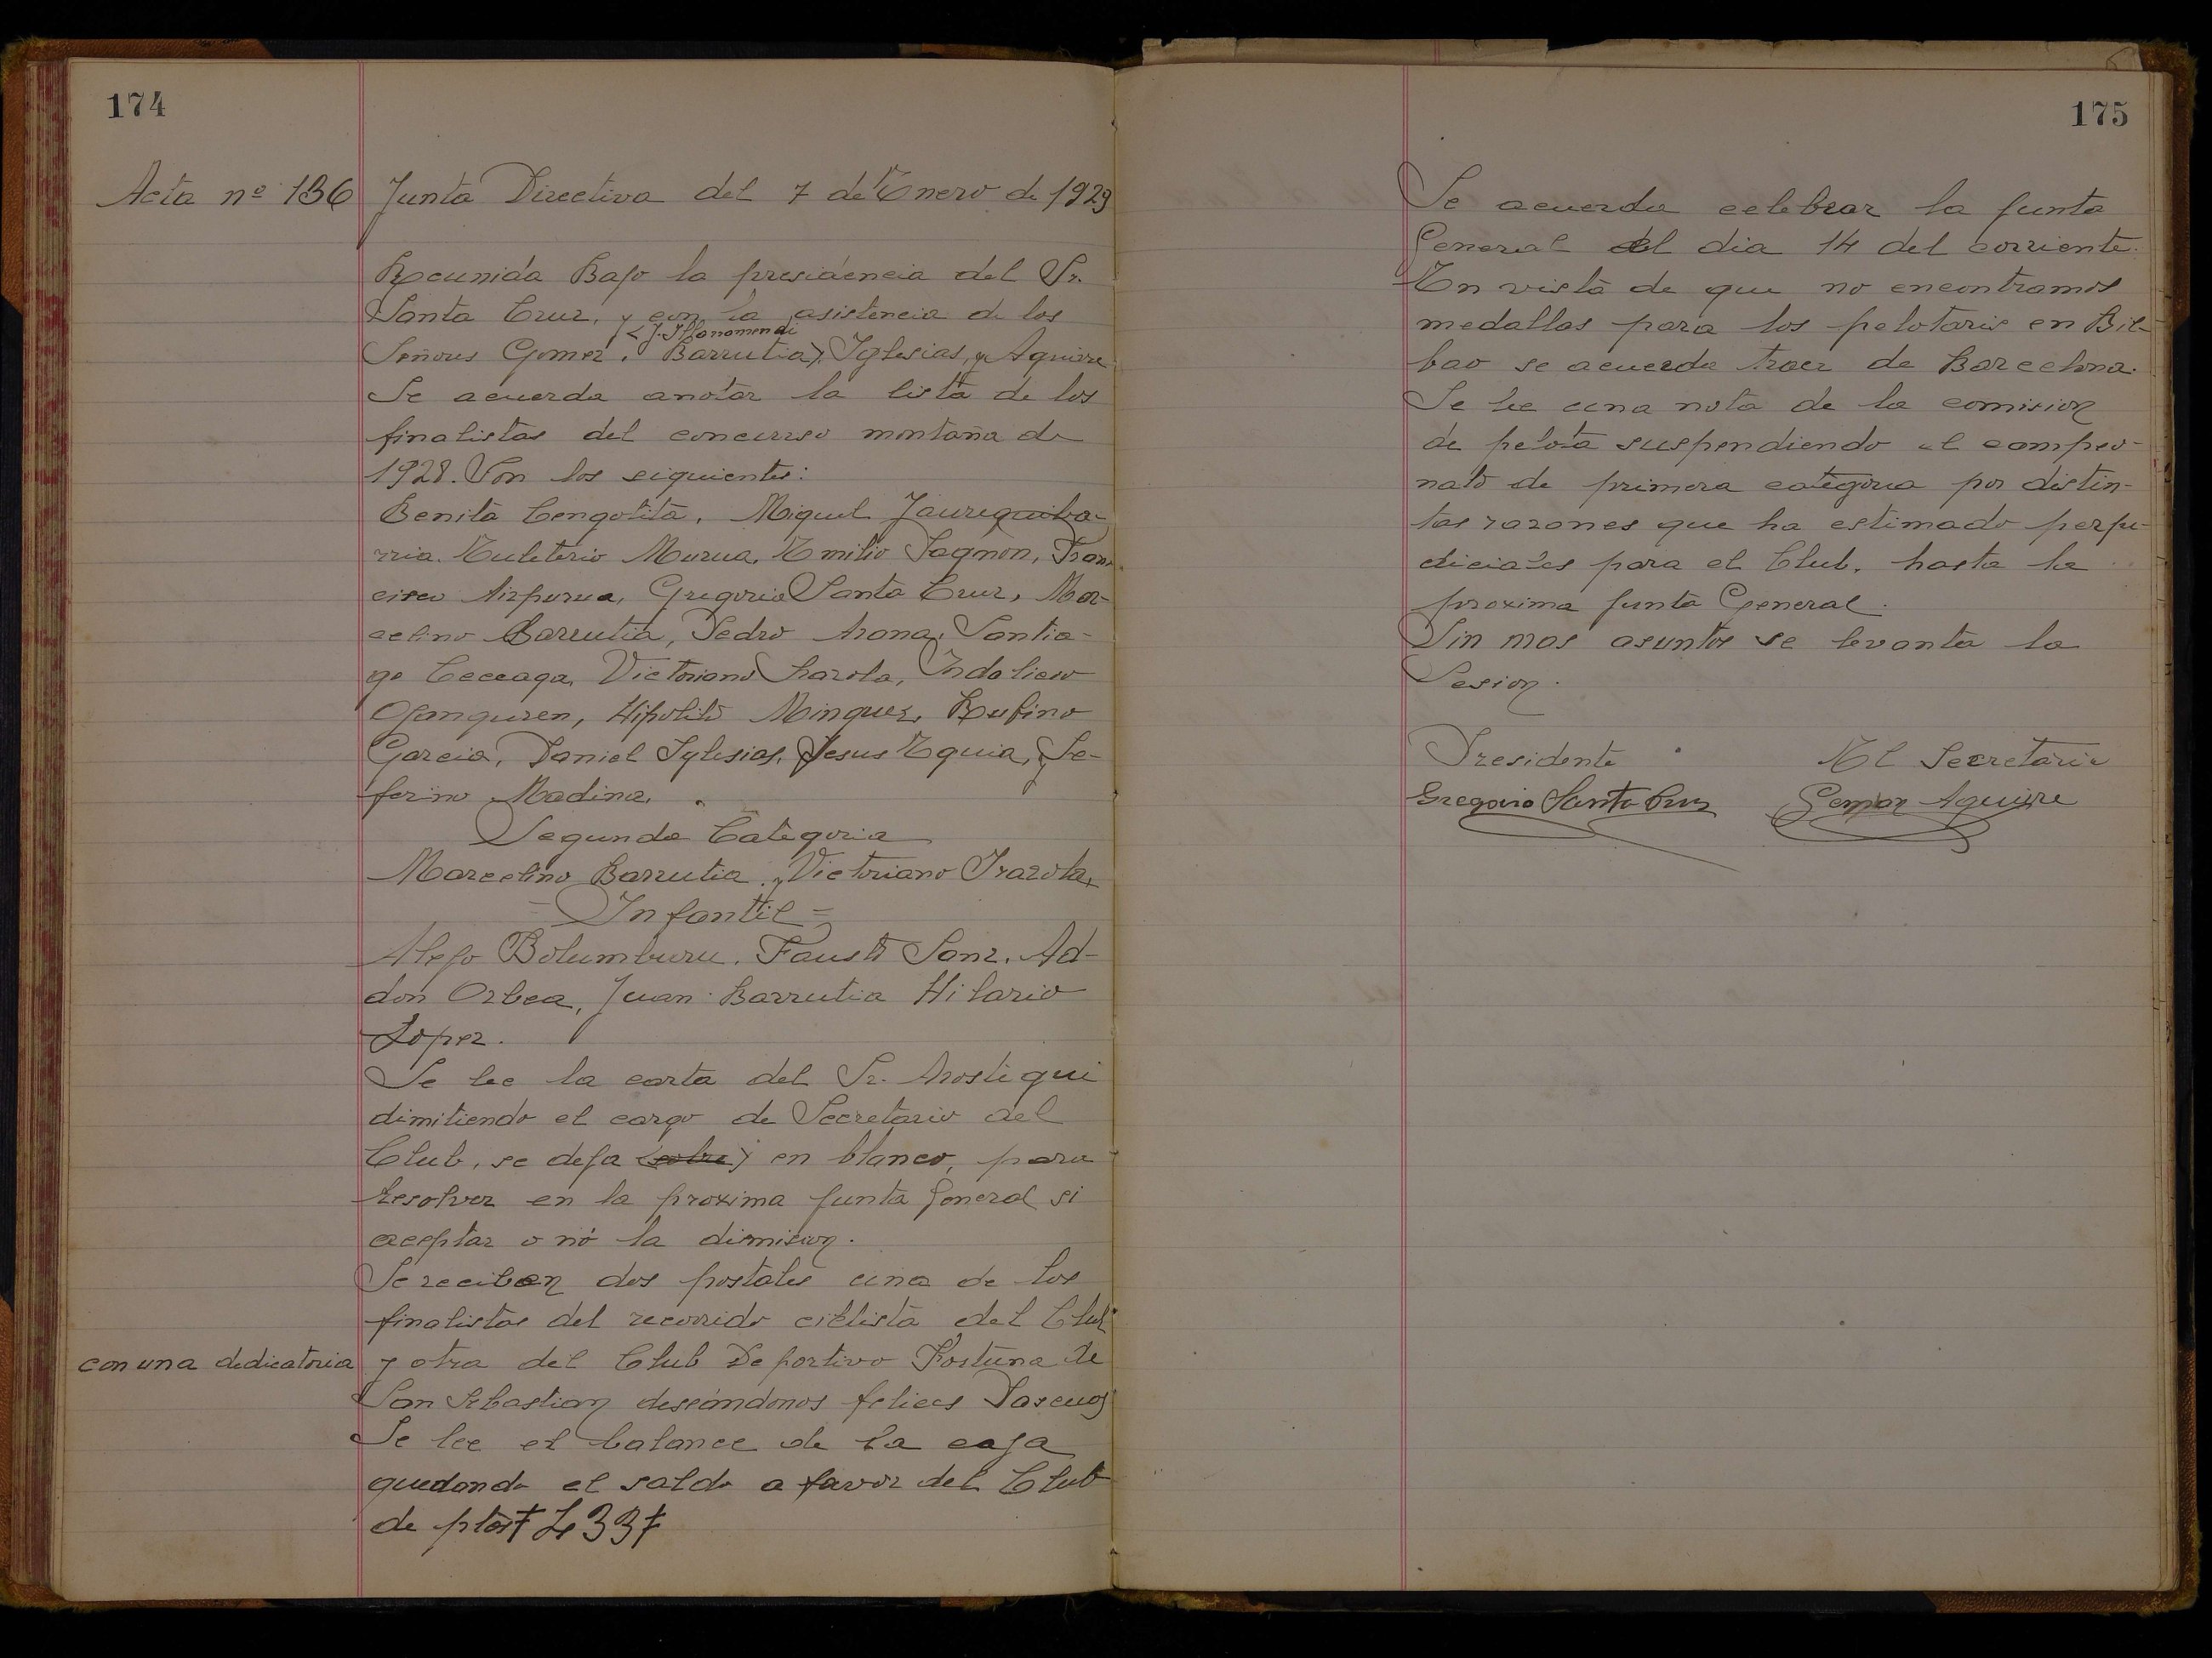 174
Acta nº 136 Junta Directiva del 7 de Enero de 1929
Reunida Bajo la presidencia del Sr.
Santa Cruz, y con la asistencia de los
Señores Gomez, Barrutia, Iglesias, y Aguirre
Se acuerda anotar la lista de los
finalistas del concurso montaña de
1928. Son los siguientes:
Benita Cengotita, Miguel Jaureguiba-
rria, Euleterio Murua, Emilio Gagnon, Fran-
cisco Aizpurua, Gregorio Santa Cruz, Mar-
celino Barrutia, Pedro Arana, Santia-
go Ceceaga, Victoriano Irazola, Indalicio
Ojanguren, Hipolito Minguez, Rufino
Garcia, Daniel Iglesias, Jesus Eguia, y Se-
ferino Madina.
Segunda Categoria
Marcelino Barrutia, y Victoriano Irazola,
= Infantil =
Alejo Bolumburu, Fausto Sanz, Ad-
don Orbea, Juan Barrutia Hilario
Lopez.
Se lee la carta del Sr. Arostiqui
dimitiendo el cargo de Secretario del
Club, se deja en blanco, para
resolver en la proxima junta General si
aceptar o nó la dimision.
Se reciben dos postales una de los
finalistas del recorrido ciclista del Club
con una dedicatoria y otra del Club Deportivo Fortuna de
San Sebastian deseándonos felices Pascuas
Se lee el balance de la caja
quedando el saldo a favor del Club
de ptas ‡ 433 ‡
175
Se acuerda celebrar la junta
General el dia 14 del corriente.
En vista de que no encontramos
medallas para los pelotaris en Bil-
bao se acuerda traer de Barcelona.
Se lee una nota de la comision
de pelota suspendiendo el campeo-
nato de primera categoria por distin-
tas razones que ha estimado perju-
diciales para el Club, hasta la
proxima junta General.
Sin mas asuntos se levanta la
Sesion.
Presidente El Secretario
Gregorio Santa Cruz German Aguirre